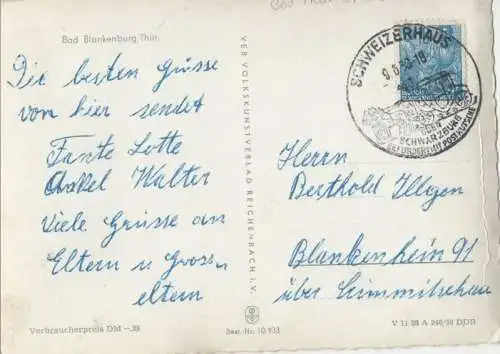 Bad Blankenburg/Thür.
Die besten Grüsse
von hier sendet
Tante Lotte
Onkel Walter
Viele Grüsse an
Eltern u Gross
eltern
Verbraucherpreis DM -,20
VEB VOLKSKUNSTVERLAG REICHENBACH I.V.
Best.-Nr. 10 933
SCHWEIZERHAUS
SCHWARZBURG
BEFÖRDERT MIT POSTKUTSCHE
Herrn
Berthold Illgen
Blankenhain 91
über Crimmitschau
V 11 28 A 240/58 DDR